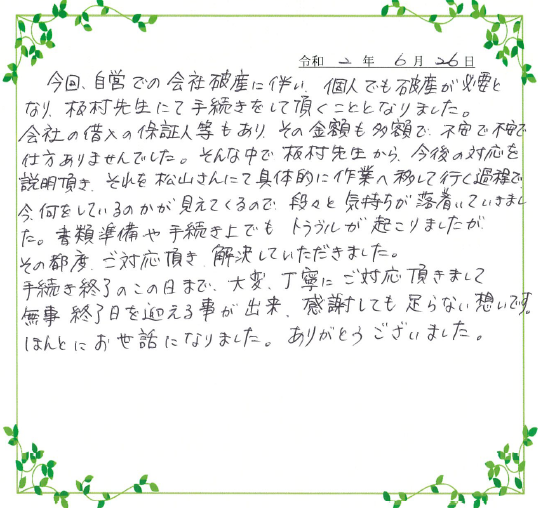 令和 2 年 6 月 26 日
今回、自営での会社破産に伴い、個人でも破産が必要と
なり、板村先生にて手続きをして頂くこととなりました。
会社の借入の保証人等もあり、その金額も多額で、不安で不安で
仕方ありませんでした。そんな中で板村先生から、今後の対応を
説明頂き、それを松山さんにて具体的に作業へ移して行く過程で、
今、何をしているのかが見えてくるので、段々と気持ちが落着いていきまし
た。書類準備や手続き上でも トラブルが起こりましたが、
その都度、ご対応頂き、解決していただきました。
手続き終了のこの日まで、大変、丁寧にご対応頂きまして
無事 終了日を迎える事が出来、感謝しても足らない想いです。
ほんとにお世話になりました。ありがとうございました。